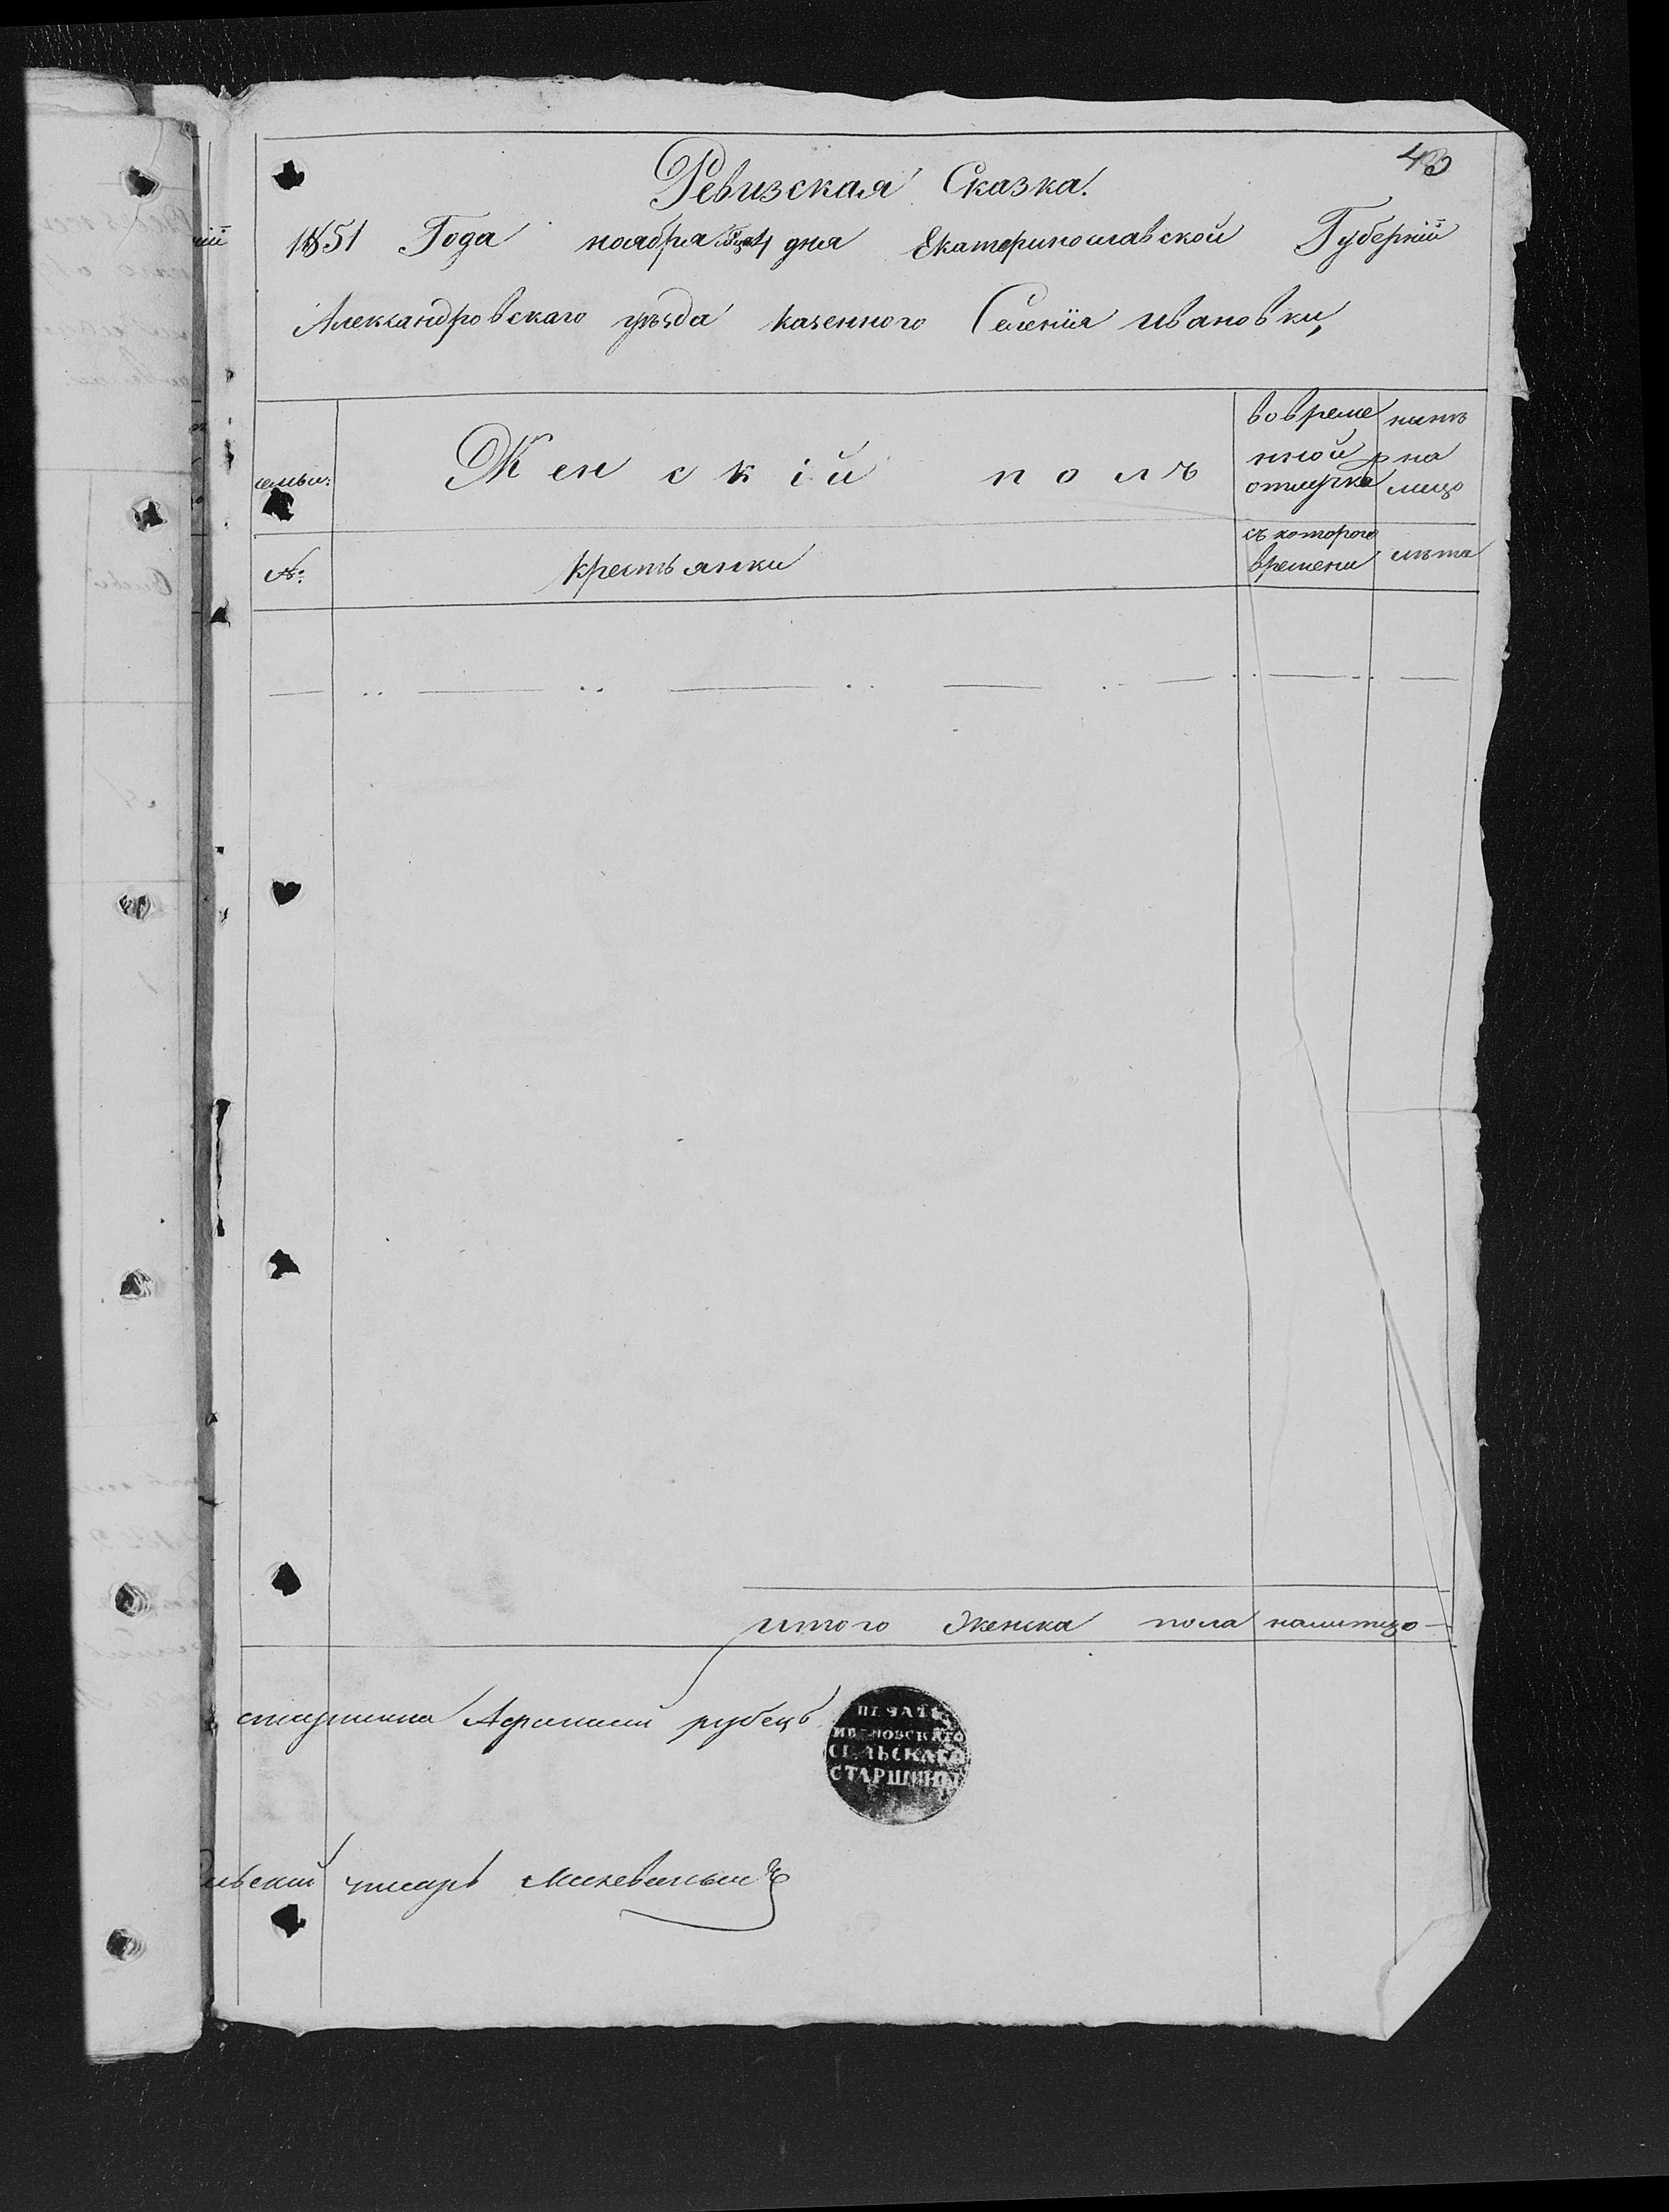 43
Ревизская Сказка.
1851 Года ноября дня Екатеринославской Губернiи
Александровскаго уѣзда казенного Селенiя ивановки,
семьи:
Женскiй полъ
вовреме
нной
отлучкѣ
нынѣ
на
лицо
№:
крестьянки
съ которого
времени
лѣта
итого женска пола налицо
рубецъ
ПЕЧАТЬ
ИВАНОВСКАГО
СЕЛЬСКАГО
СТАРШИНЫ
писарь